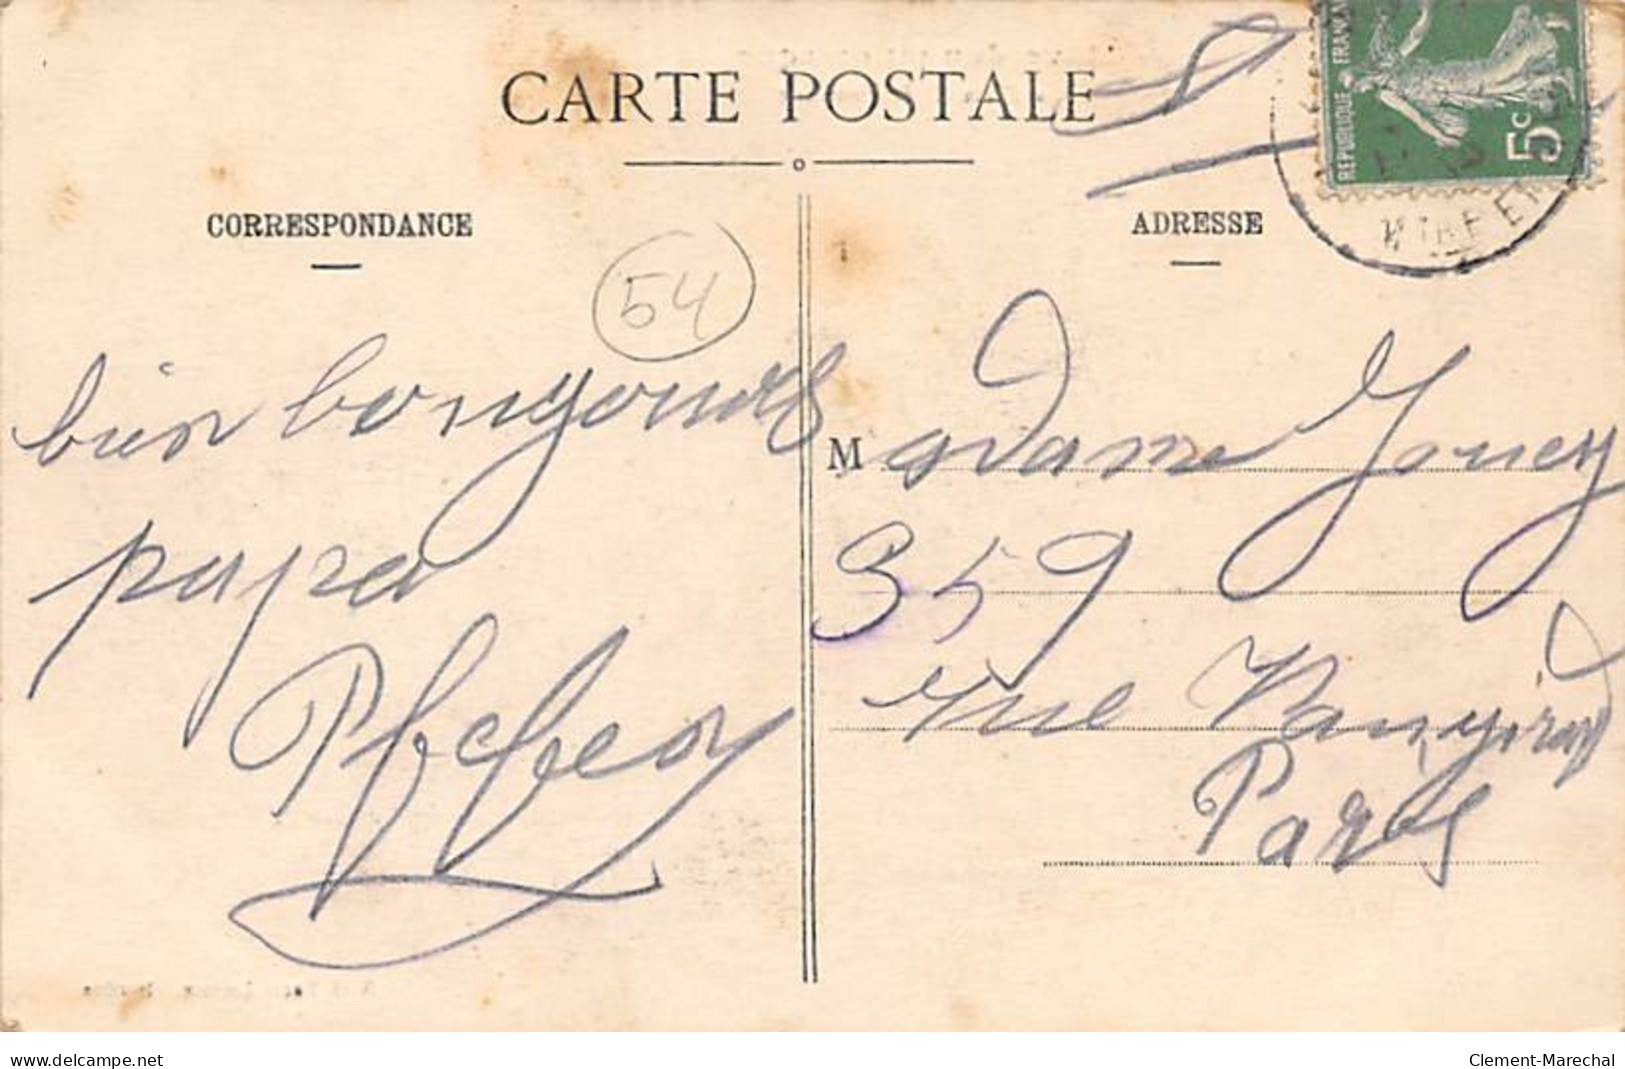 CARTE POSTALE
CORRESPONDANCE
ADRESSE
REPUBLIQUE FRANÇAISE
5c
54
bien bonjour
papa
Madame Jouey
359
rue
Paris
www.delcampe.net
Clement-Marechal